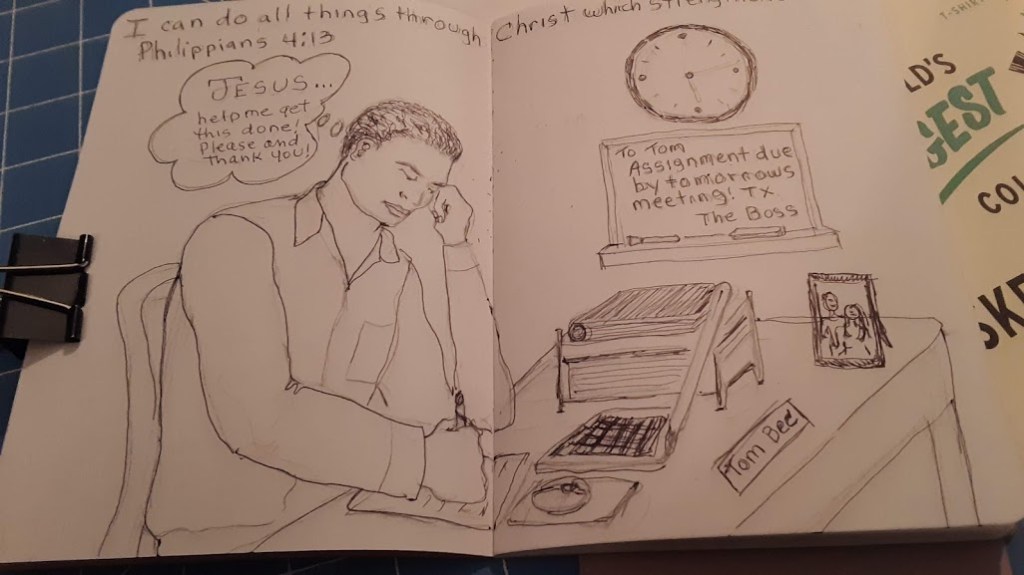 I can do all things through Christ which
Philippians 4:13
JESUS...
help me get
this done,
Please and
Thank you!
To Tom
Assignment due
by tomorrows
meeting! TX
The Boss
Tom Bee
T-SHIR
LD'S
GEST
COL
SKE